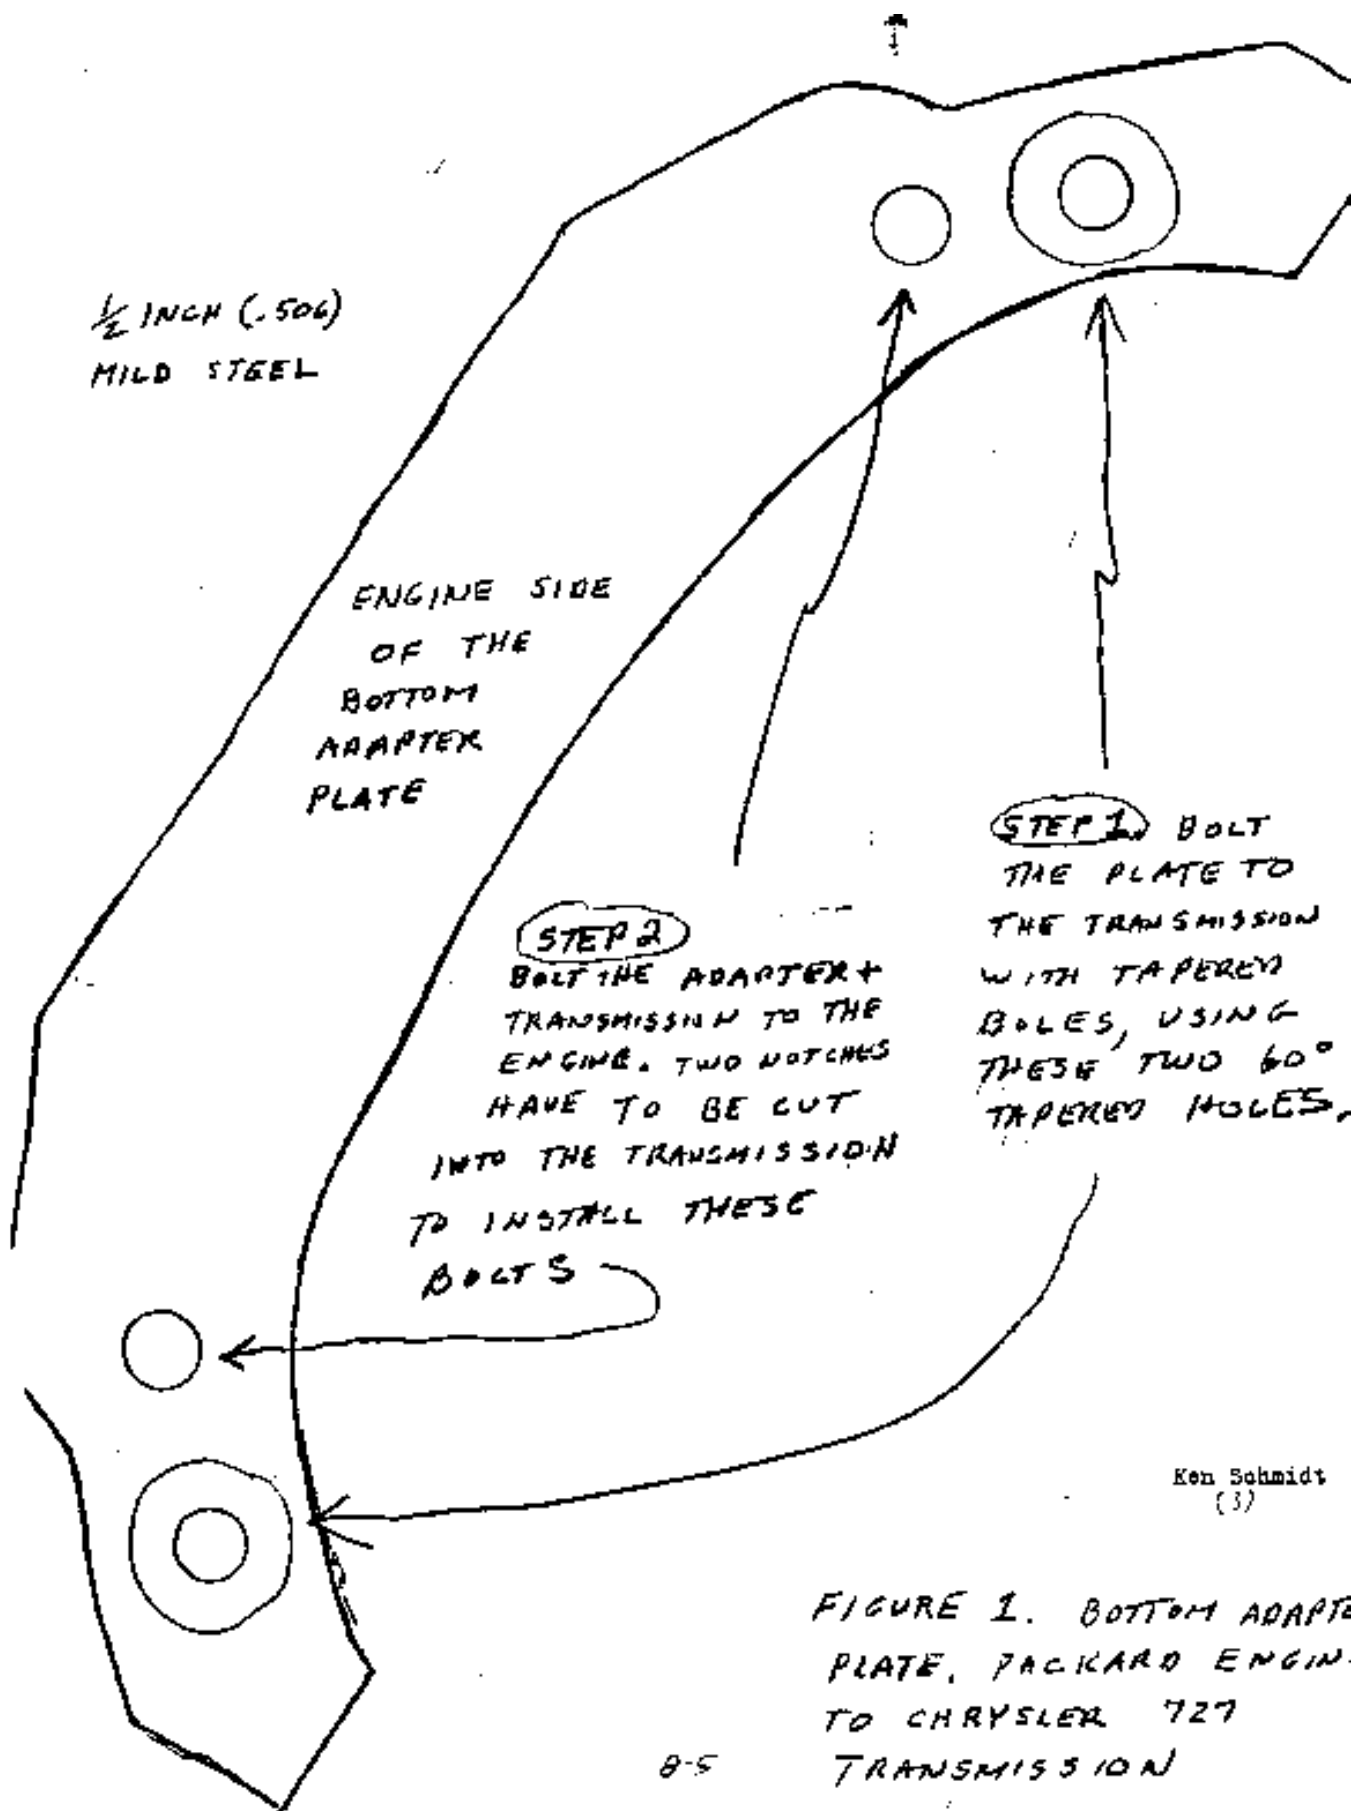 ½ INCH (.506)
MILD STEEL
ENGINE SIDE
OF THE
BOTTOM
ADAPTER
PLATE
STEP 1. BOLT
THE PLATE TO
THE TRANSMISSION
WITH TAPERED
BOLES, USING
THESE TWO 60°
TAPERED HOLES.
STEP 2
BOLT THE ADAPTER +
TRANSMISSION TO THE
ENGINE. TWO NOTCHES
HAVE TO BE CUT
INTO THE TRANSMISSION
TO INSTALL THESE
BOLTS
Ken Schmidt
(3)
FIGURE 1. BOTTOM ADAPTE
PLATE, PACKARD ENGIN
TO CHRYSLER 727
TRANSMISSION
8-5